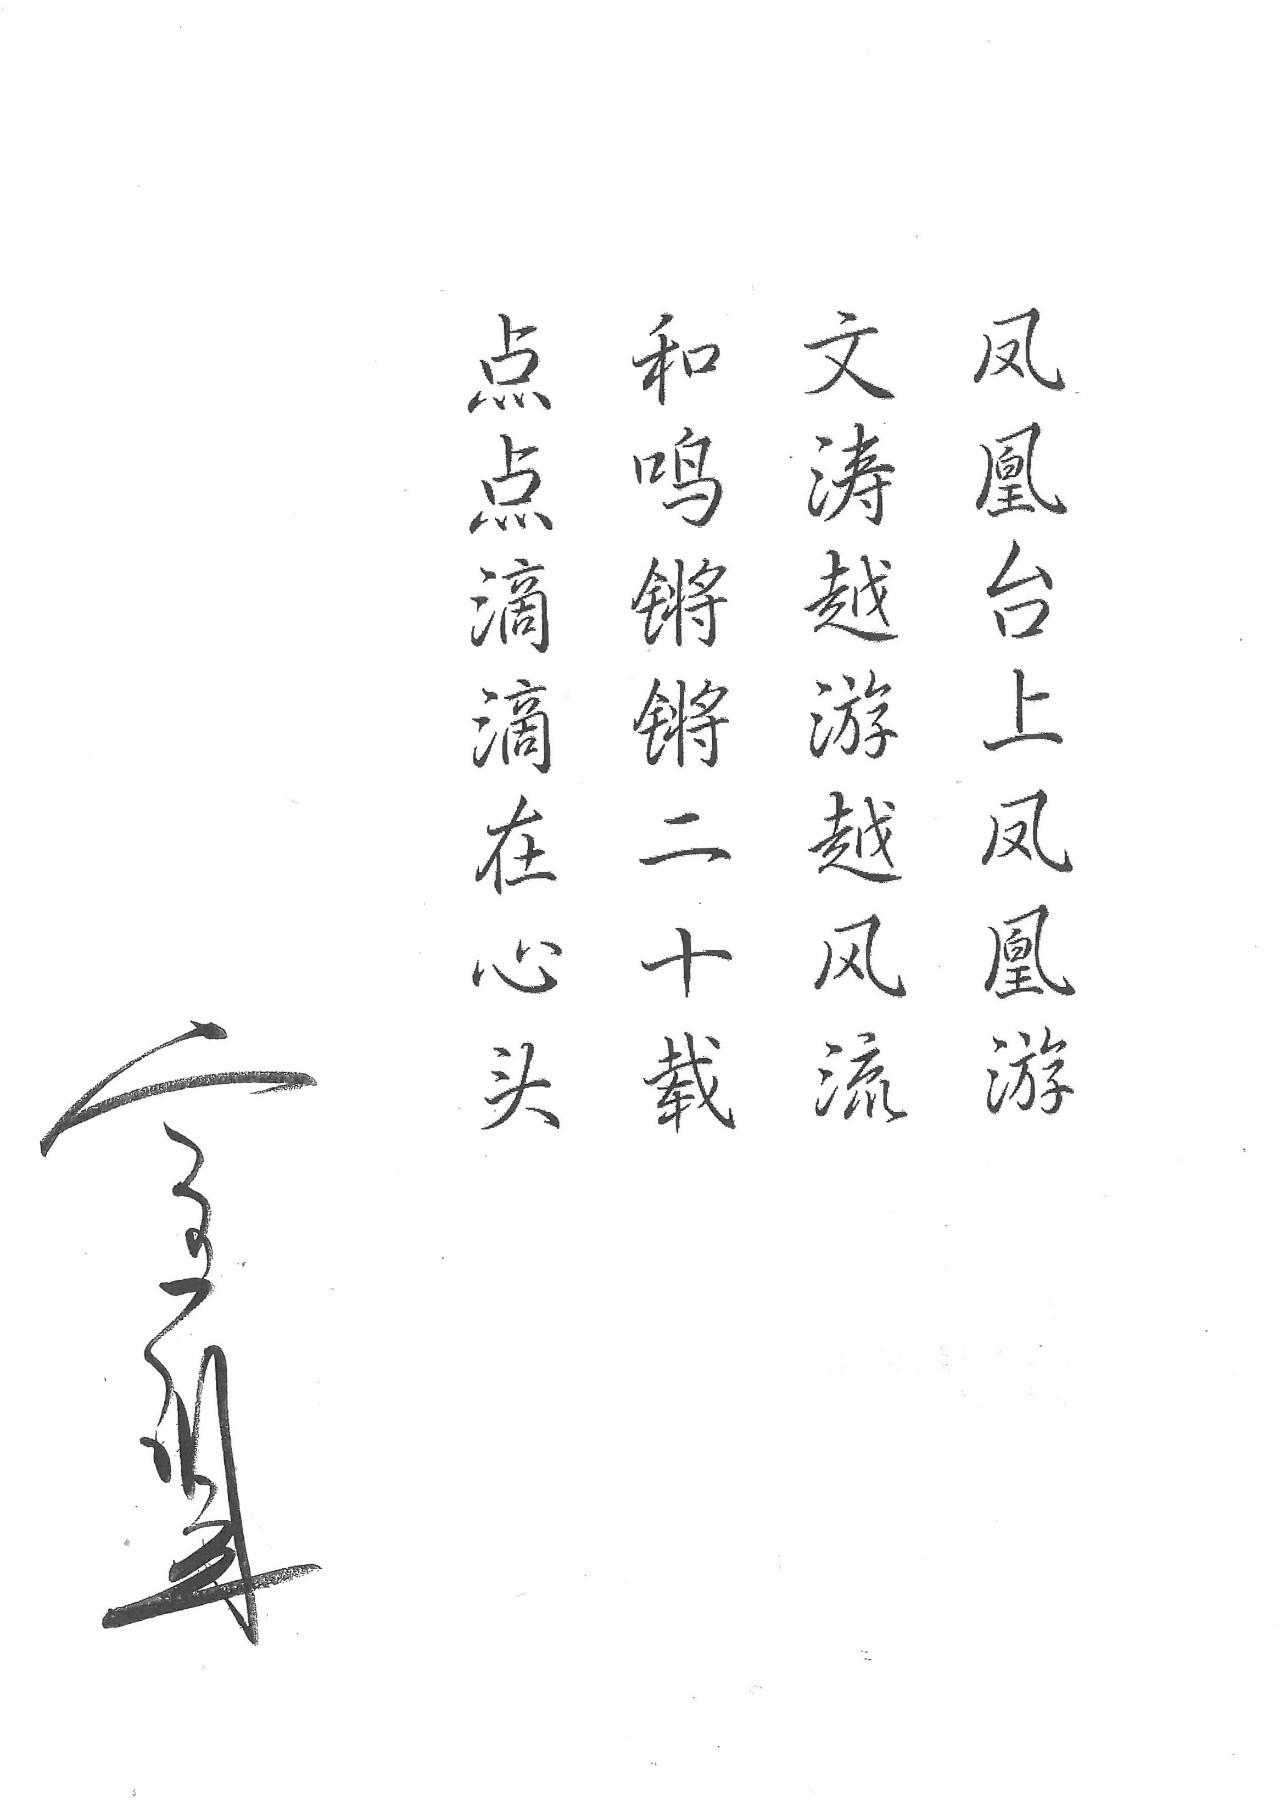 凤凰台上凤凰游
文涛越游越风流
和鸣锵锵二十载
点点滴滴在心头